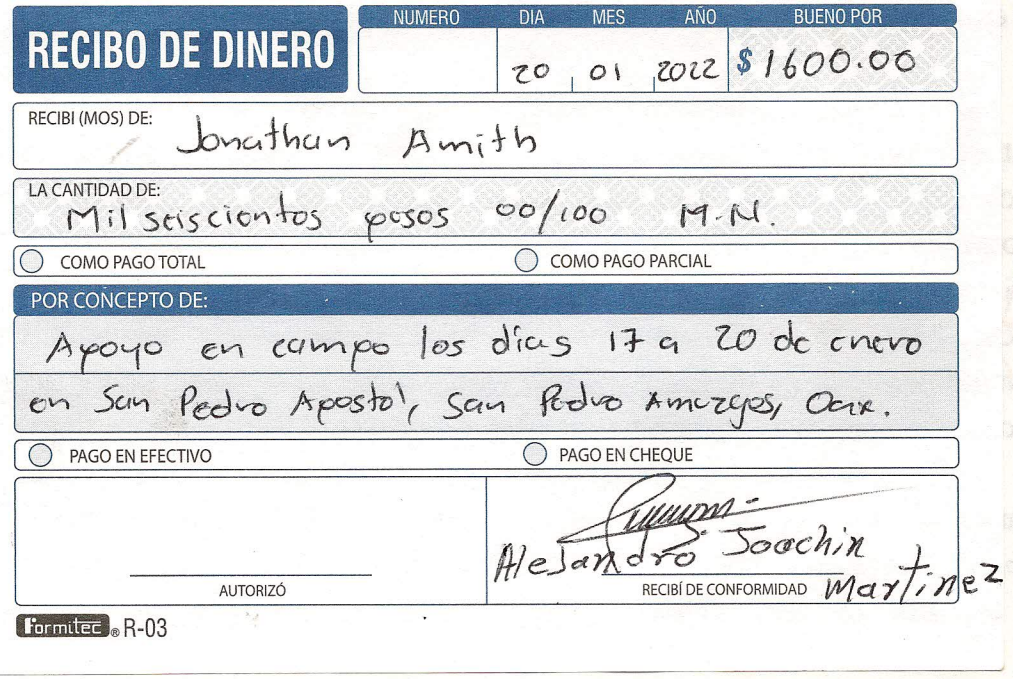 RECIBO DE DINERO
NUMERO DIA MES AÑO BUENO POR
20 01 2022 $1600.00
RECIBI (MOS) DE: Jonathan Amith
LA CANTIDAD DE:
Mil seiscientos pesos 00/100 M.N.
COMO PAGO TOTAL COMO PAGO PARCIAL
POR CONCEPTO DE:
Apoyo en campo los días 17 a 20 de enero
en San Pedro Apostol, San Pedro Amuzgos, Oax.
PAGO EN EFECTIVO PAGO EN CHEQUE
Alejandro Joachin
Martinez
AUTORIZÓ RECIBÍ DE CONFORMIDAD
Formitec ® R-03